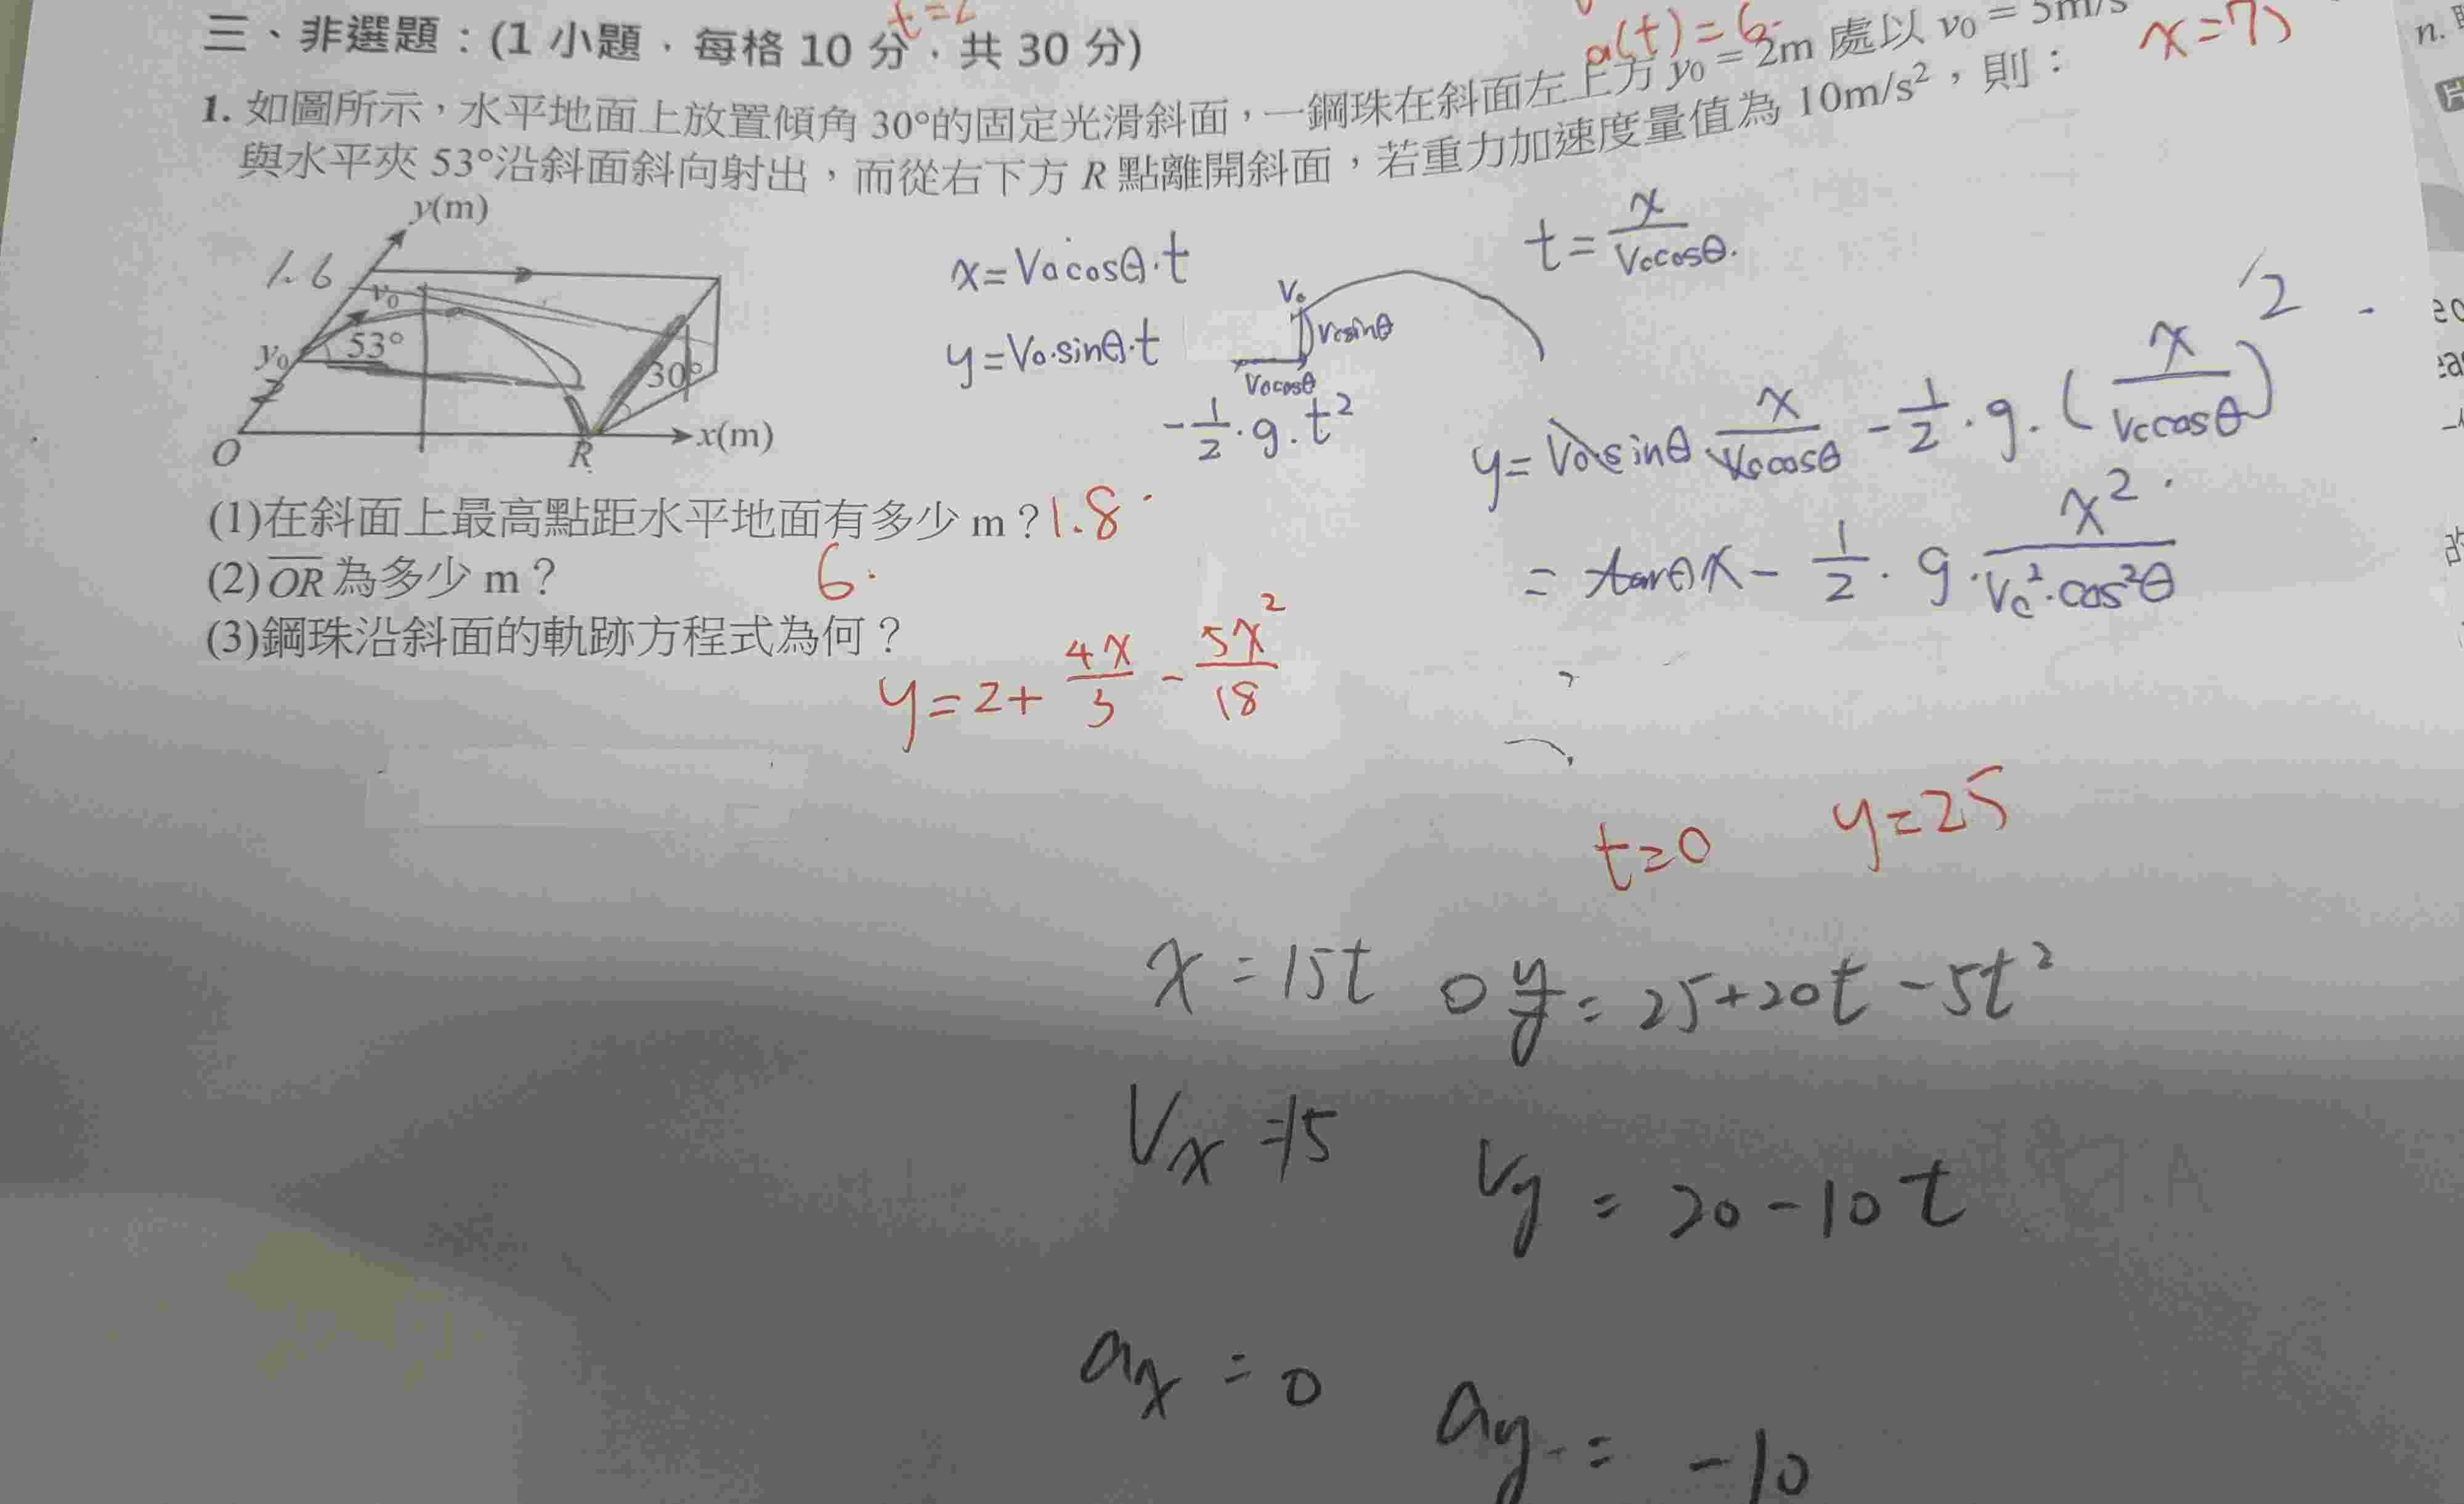 t=2
三、非選題：(1 小題，每格 10 分，共 30 分)
a(t)=6.
x=75
1. 如圖所示，水平地面上放置傾角 30°的固定光滑斜面，一鋼珠在斜面左上方 y₀ = 2m 處以 v₀ = 5m/s
與水平夾 53°沿斜面斜向射出，而從右下方 R 點離開斜面，若重力加速度量值為 10m/s²，則：
y(m)
1.6
v₀
y₀
53°
30°
O
R
x(m)
x=V₀cosθ·t
y=V₀·sinθ·t
-1/2·g·t²
V₀
V₀sinθ
V₀cosθ
t=x/V₀cosθ.
y=V₀sinθ·x/V₀cosθ-1/2·g·(x/V₀cosθ)²
=tanθx-1/2·g·x²/V₀²·cos²θ
(1)在斜面上最高點距水平地面有多少 m？1.8
(2)OR 為多少 m？ 6.
(3)鋼珠沿斜面的軌跡方程式為何？
y=2+4x/3-5x²/18
t=0 y=25
x=15t y=25+20t-5t²
Vx=15 Vy=20-10t
ax=0 ay=-10